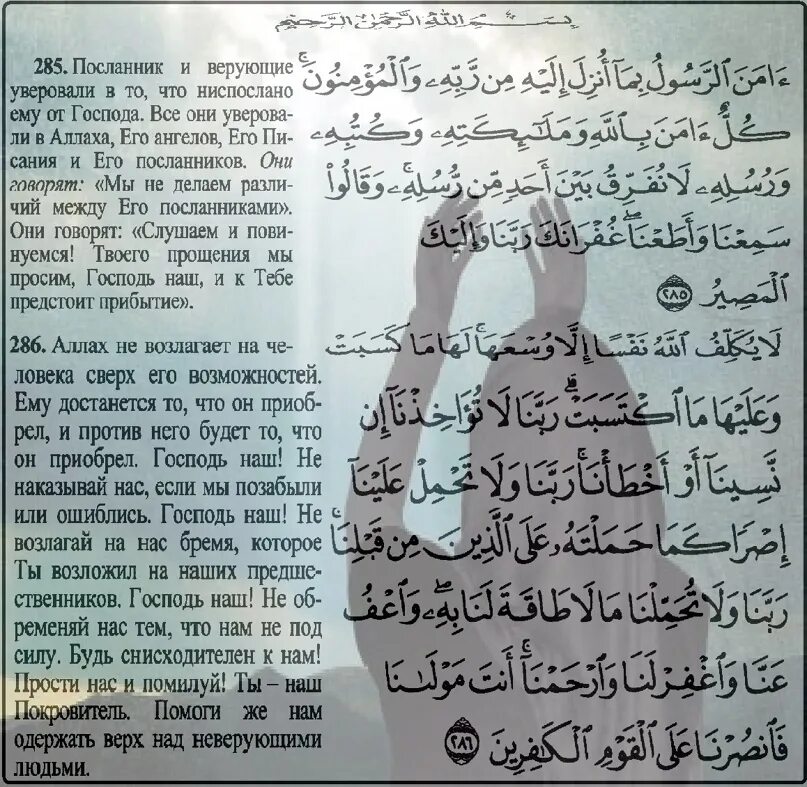 بِسْمِ اللهِ الرَّحْمٰنِ الرَّحِيمِ
285. Посланник и верующие
уверовали в то, что ниспослано
ему от Господа. Все они уверова-
ли в Аллаха, Его ангелов, Его Пи-
сания и Его посланников. Они
говорят: «Мы не делаем разли-
чий между Его посланниками».
Они говорят: «Слушаем и пови-
нуемся! Твоего прощения мы
просим, Господь наш, и к Тебе
предстоит прибытие».
286. Аллах не возлагает на че-
ловека сверх его возможностей.
Ему достанется то, что он приоб-
рел, и против него будет то, что
он приобрел. Господь наш! Не
наказывай нас, если мы позабыли
или ошиблись. Господь наш! Не
возлагай на нас бремя, которое
Ты возложил на наших предше-
ственников. Господь наш! Не об-
ременяй нас тем, что нам не под
силу. Будь снисходителен к нам!
Прости нас и помилуй! Ты – наш
Покровитель. Помоги же нам
одержать верх над неверующими
людьми.
ءَامَنَ ٱلرَّسُولُ بِمَآ أُنزِلَ إِلَيْهِ مِن رَّبِّهِۦ وَٱلْمُؤْمِنُونَ ۚ
كُلٌّ ءَامَنَ بِٱللَّهِ وَمَلَٰٓئِكَتِهِۦ وَكُتُبِهِۦ
وَرُسُلِهِۦ لَا نُفَرِّقُ بَيْنَ أَحَدٍ مِّن رُّسُلِهِۦ ۚ وَقَالُوا۟
سَمِعْنَا وَأَطَعْنَا ۖ غُفْرَانَكَ رَبَّنَا وَإِلَيْكَ
ٱلْمَصِيرُ ٢٨٥
لَا يُكَلِّفُ ٱللَّهُ نَفْسًا إِلَّا وُسْعَهَا ۚ لَهَا مَا كَسَبَتْ
وَعَلَيْهَا مَا ٱكْتَسَبَتْ ۗ رَبَّنَا لَا تُؤَاخِذْنَآ إِن
نَّسِينَآ أَوْ أَخْطَأْنَا ۚ رَبَّنَا وَلَا تَحْمِلْ عَلَيْنَآ
إِصْرًا كَمَا حَمَلْتَهُۥ عَلَى ٱلَّذِينَ مِن قَبْلِنَا ۚ
رَبَّنَا وَلَا تُحَمِّلْنَا مَا لَا طَاقَةَ لَنَا بِهِۦ ۖ وَٱعْفُ
عَنَّا وَٱغْفِرْ لَنَا وَٱرْحَمْنَآ ۚ أَنتَ مَوْلَىٰنَا
فَٱنصُرْنَا عَلَى ٱلْقَوْمِ ٱلْكَٰفِرِينَ ٢٨٦